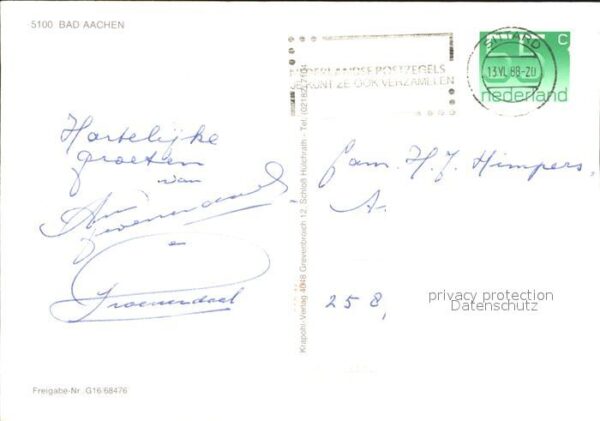 5100 BAD AACHEN
Hartelijke
groeten
van
Groenendaal
Krapohl-Verlag 4048 Grevenbroich 12, Schloß Hülchrath - Tel. (02182)
NEDERLANDSE POSTZEGELS
KUNT ZE OOK VERZAMELEN
SITTARD
13.VI.88-20
55 C
nederland
fam. H.J. Himpers,
A.
258,
privacy protection
Datenschutz
Freigabe-Nr. G16/68476